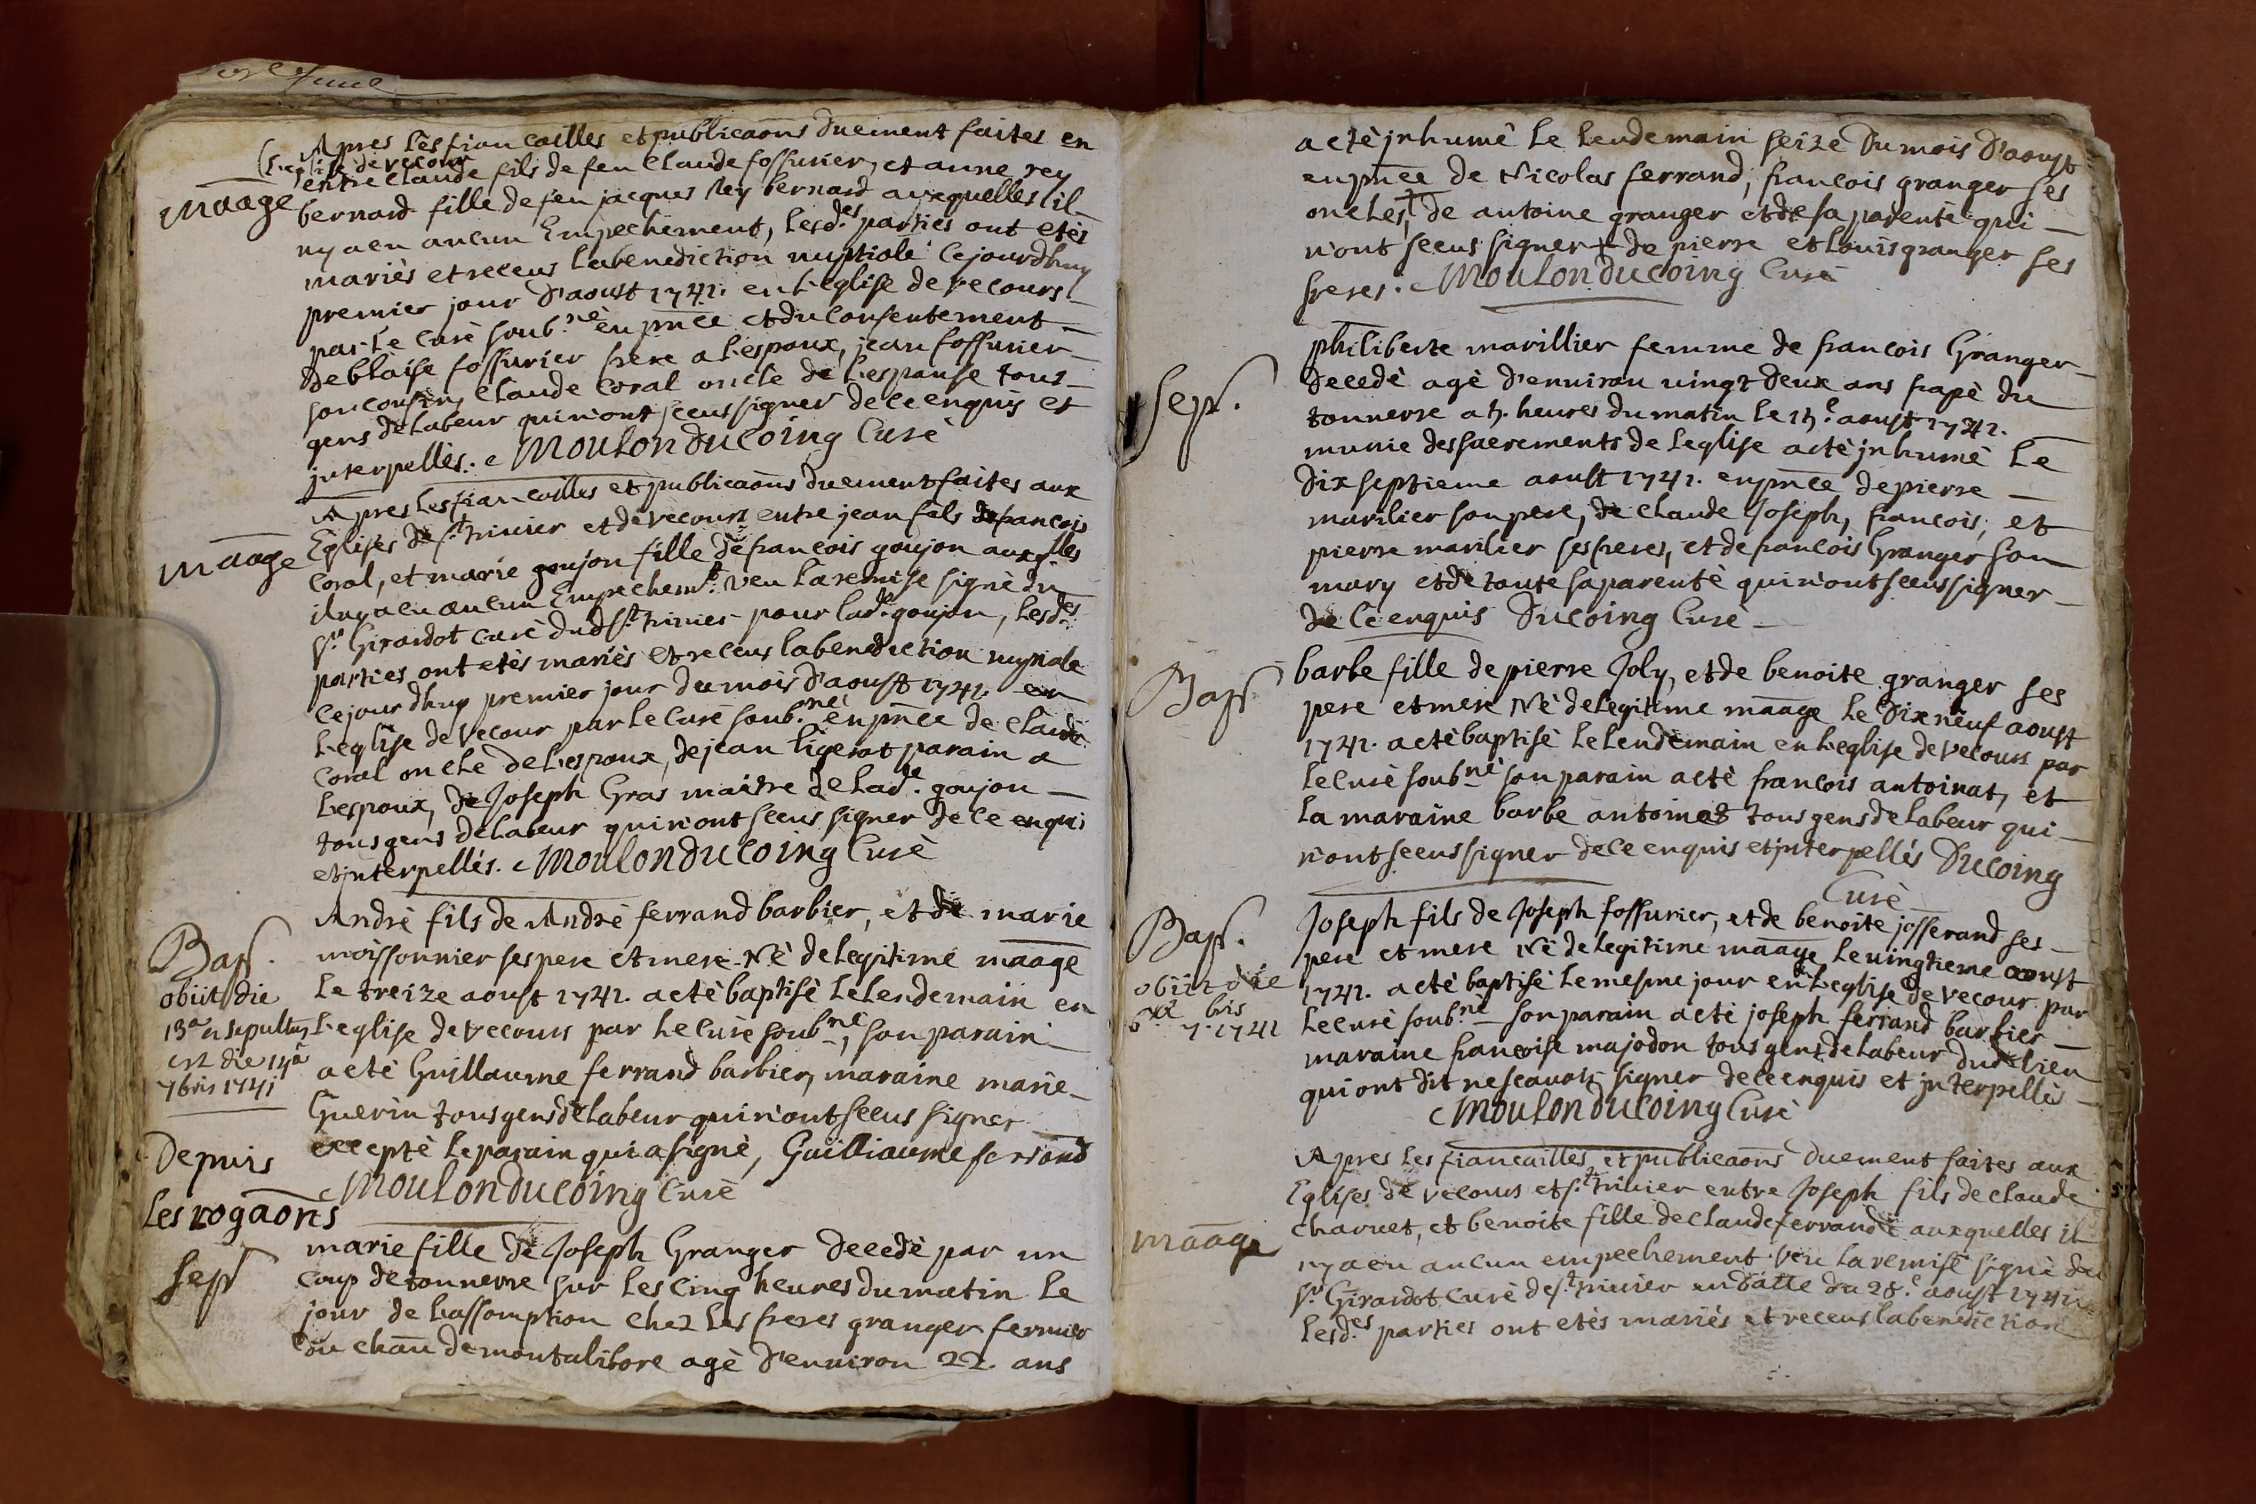 Apres les fiancailles et publicaons duement faites en
(l'eglise de vecour
maage
entre claude fils de feu Claude fossurier, et anne rey
bernard fille de feu jacques Rey bernard auxquelles il
ny a eu aucun Empechement, lesd.es parties ont etès
mariès et receus la benediction nuptiale Cejourdhuy
premier jour d'aoust 1741. en l'eglise de vecours
par le Curè soub.né en pnce et du consentement
de blaise fossurier frere a l'espoux, jean fossurier
son cousin, Claude Coral oncle de l'espouse tous
gens de labeur qui n'ont sceus signer de ce enquis et
interpellès. Moulon du coing Curè
Apres les fiancailles et publicaons duement faites aux
maage
Eglises de s.t trivier et de vecours entre jean fils de francois
Coral, et marie goujon fille de francois goujon auxqlles
il ny a eu aucun Empechem.t veu la remise signè du
s.r Girardot curè dud s.t trivier pour lad.e goujon, lesd.es
parties ont etès mariès et receus la benediction nuptiale
Cejourdhuy premier jour du mois d'aoust 1741. en
l'eglise de vecour par le Curè soub.né en pnce de claude
Coral oncle de l'espoux, de jean ligerot parain a
l'espoux, de Joseph Gras maitre de lad.e goujon
tous gens de labeur qui n'ont sceus signer de ce enquis
et interpellés. Moulon du coing Curè
Andrè fils de Andrè ferrand barbier, et de marie
Bap.
moissonnier ses pere et mere Nè de legitime maage
obiit die
le treize aoust 1741. a etè baptisè le lendemain en
13a sepultus
l'eglise de vecours par le Curè soub.né, son parain
est die 14a
7bris 1741
a etè Guillaume ferrand barbier, maraine marie
Guerin tous gens de labeur qui n'ont sceus signer
exceptè le parain qui a signè, Guilliaume ferrand
Depuis
Moulon du coing Curè
les rogaons
marie fille de Joseph Granger decedè par un
sep
coup de tonnerre sur les cinq heures du matin le
jour de l'assomption chez les freres granger fermier
du chau de montalibore agè d'environ 22. ans
a etè inhumè le lendemain seize du mois d'aoust
en pnce de Nicolas ferrand, francois granger ses
oncles, de antoine granger et de sa parentè qui
n'ont sceus signer + de pierre et louis granger ses
freres. Moulon du coing Curè
philiberte marillier femme de francois Granger
Sep.
decedè agè d'environ vingt deux ans frapè du
tonnerre a 5. heures du matin le 15.e aoust 1741.
munie des sacrements de l'eglise a etè inhumè le
dix septieme aoust 1741. en pnce de pierre
marilier son pere, de claude Joseph, francois, et
pierre marilier ses freres, et de francois Granger son
mary et de toute sa parentè qui n'ont sceus signer
de ce enquis Ducoing Curè
barbe fille de pierre Joly, et de benoite granger ses
Bap
pere et mere Nè de legitime maage le dix neuf aoust
1741. a etè baptisè le lendemain en l'eglise de vecours par
le Curè soub.né son parain a etè francois antoinat, et
la maraine barbe antoinat tous gens de labeur qui
n'ont sceus signer de ce enquis et interpellès Ducoing
Curè
Joseph fils de Joseph fossurier, et de benoite josserand ses
Bap.
pere et mere Nè de legitime maage le vingtieme aoust
obiit die
1741. a etè baptisè le mesme jour en l'eglise de vecour par
bris
7.1741
le Curè soub.né son parain a etè joseph ferrand barbier
maraine francoise majodon tous gens de labeur dud lieu
qui ont dit ne scavoir signer de ce enquis et interpellès
Moulon du coing Curè
Apres les fiancailles et publicaons duement faites aux
Eglises de vecours et s.t trivier entre Joseph fils de claude
maage
charvet, et benoite fille de claude ferrand auxquelles il
ny a eu aucun empechement veu la remise signè du
s.r Girardot Curè de s.t trivier en datte du 28.e aoust 1741
lesd.es parties ont etès mariès et receus la benediction